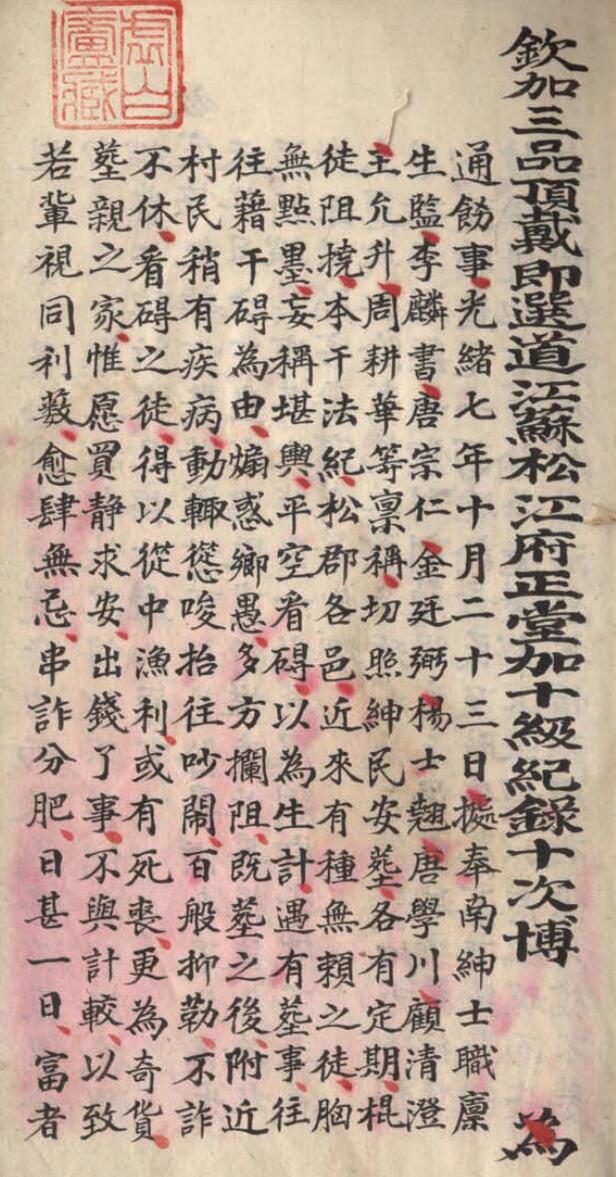 欽加三品頂戴即選道江蘇松江府正堂加十級紀錄十次博　為
通飭事光緒七年十月二十三日㨿奉南紳士職廪
生監李麟書唐宗仁金廷弼楊士翹唐學川顧清澄
王允升周耕華等稟稱切照紳民安塟各有定期棍
徒阻撓本干法紀松郡各邑近來有種無賴之徒胸
無點墨妄稱堪輿平空看碍以為生計遇有塟事往
往藉干碍為由煽惑鄉愚多方攔阻既塟之後附近
村民稍有疾病動輒慫唆抬往吵鬧百般抑勒不詐
不休看碍之徒得以從中漁利或有死喪更為奇貨
塟親之家惟愿買静求安出錢了事不與計較以致
若輩視同利藪愈肆無忌串詐分肥日甚一日富者
虞山
盧藏